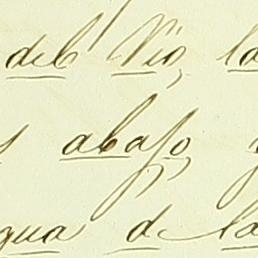 del Rio, la
abajo, y
gua de la